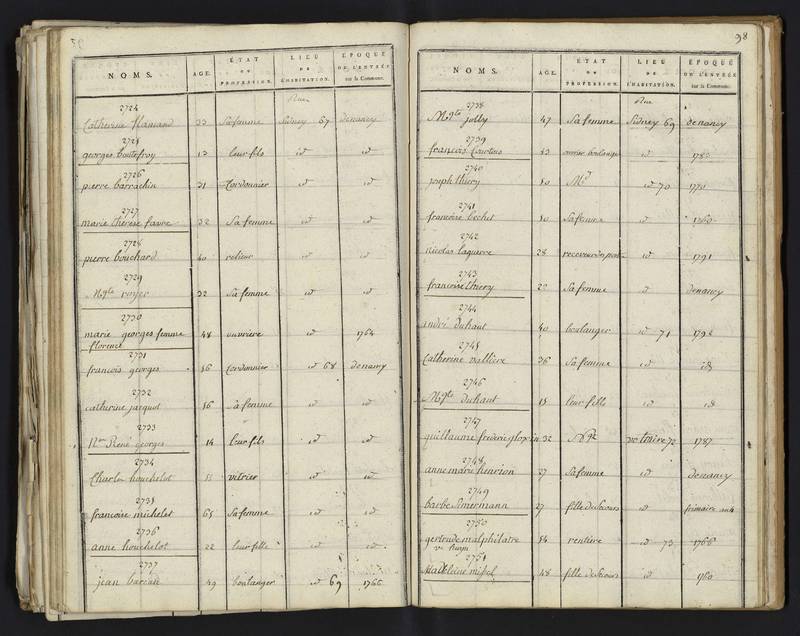 NOMS. AGE. ÉTAT OU PROFESSION. LIEU DE L'HABITATION. ÉPOQUE OU L'ENTRÉE sur la Commune.
Rue
2724
Catherine flamand 33 Sa femme Sidney 67 denancy
2725
georges bouttefroy 13 leur fils id id
2726
pierre barrachin 31 Cordonnier id id
2727
marie therese favre 32 Sa femme id id
2728
pierre bouchard 40 relieur id id
2729
Mgte royer 32 Sa femme id id
2730
marie georges femme 48 ouvriere id 1764
florence
2731
francois georges 56 Cordonnier id 68 denancy
2732
catherine jacquot 56 sa femme id id
2733
Nas René georges 14 leur fils id id
2734
Charles houchelot vitrier id id
2735
francoise michelet 65 Sa femme id id
2736
anne houchelot 22 leur fille id id
2737
jean 49 boulanger id 69 1766
98
NOMS. AGE. ÉTAT OU PROFESSION. LIEU DE L'HABITATION. ÉPOQUE OU L'ENTRÉE sur la Commune.
Rue
2738
Mgte jolly 47 Sa femme Sidney 69 denancy
2739
francois Courtois 53 ouvrier boulanger id
2740
joseph thiery 50 Md id 70
2741
francoise bechet 50 Sa femme id 1760
2742
nicolas laguerre 28 receveur des id 1791
2743
francoise thiery Sa femme id denancy
2744
andré duhaut 40 boulanger id 71 1792
2745
Catherine vallière 36 Sa femme id id
2746
Mgte duhant 15 leur fille id id
2747
guillaume frederic 32 victoire 72 1787
2748
anne marie henrion 27 Sa femme id denancy
2749
barbe Simermann 27 fille de Secours id
2750
gertrude malphilatre 54 rentière id 73 1766
2751
Madeleine 48 fille de Secours id 1760